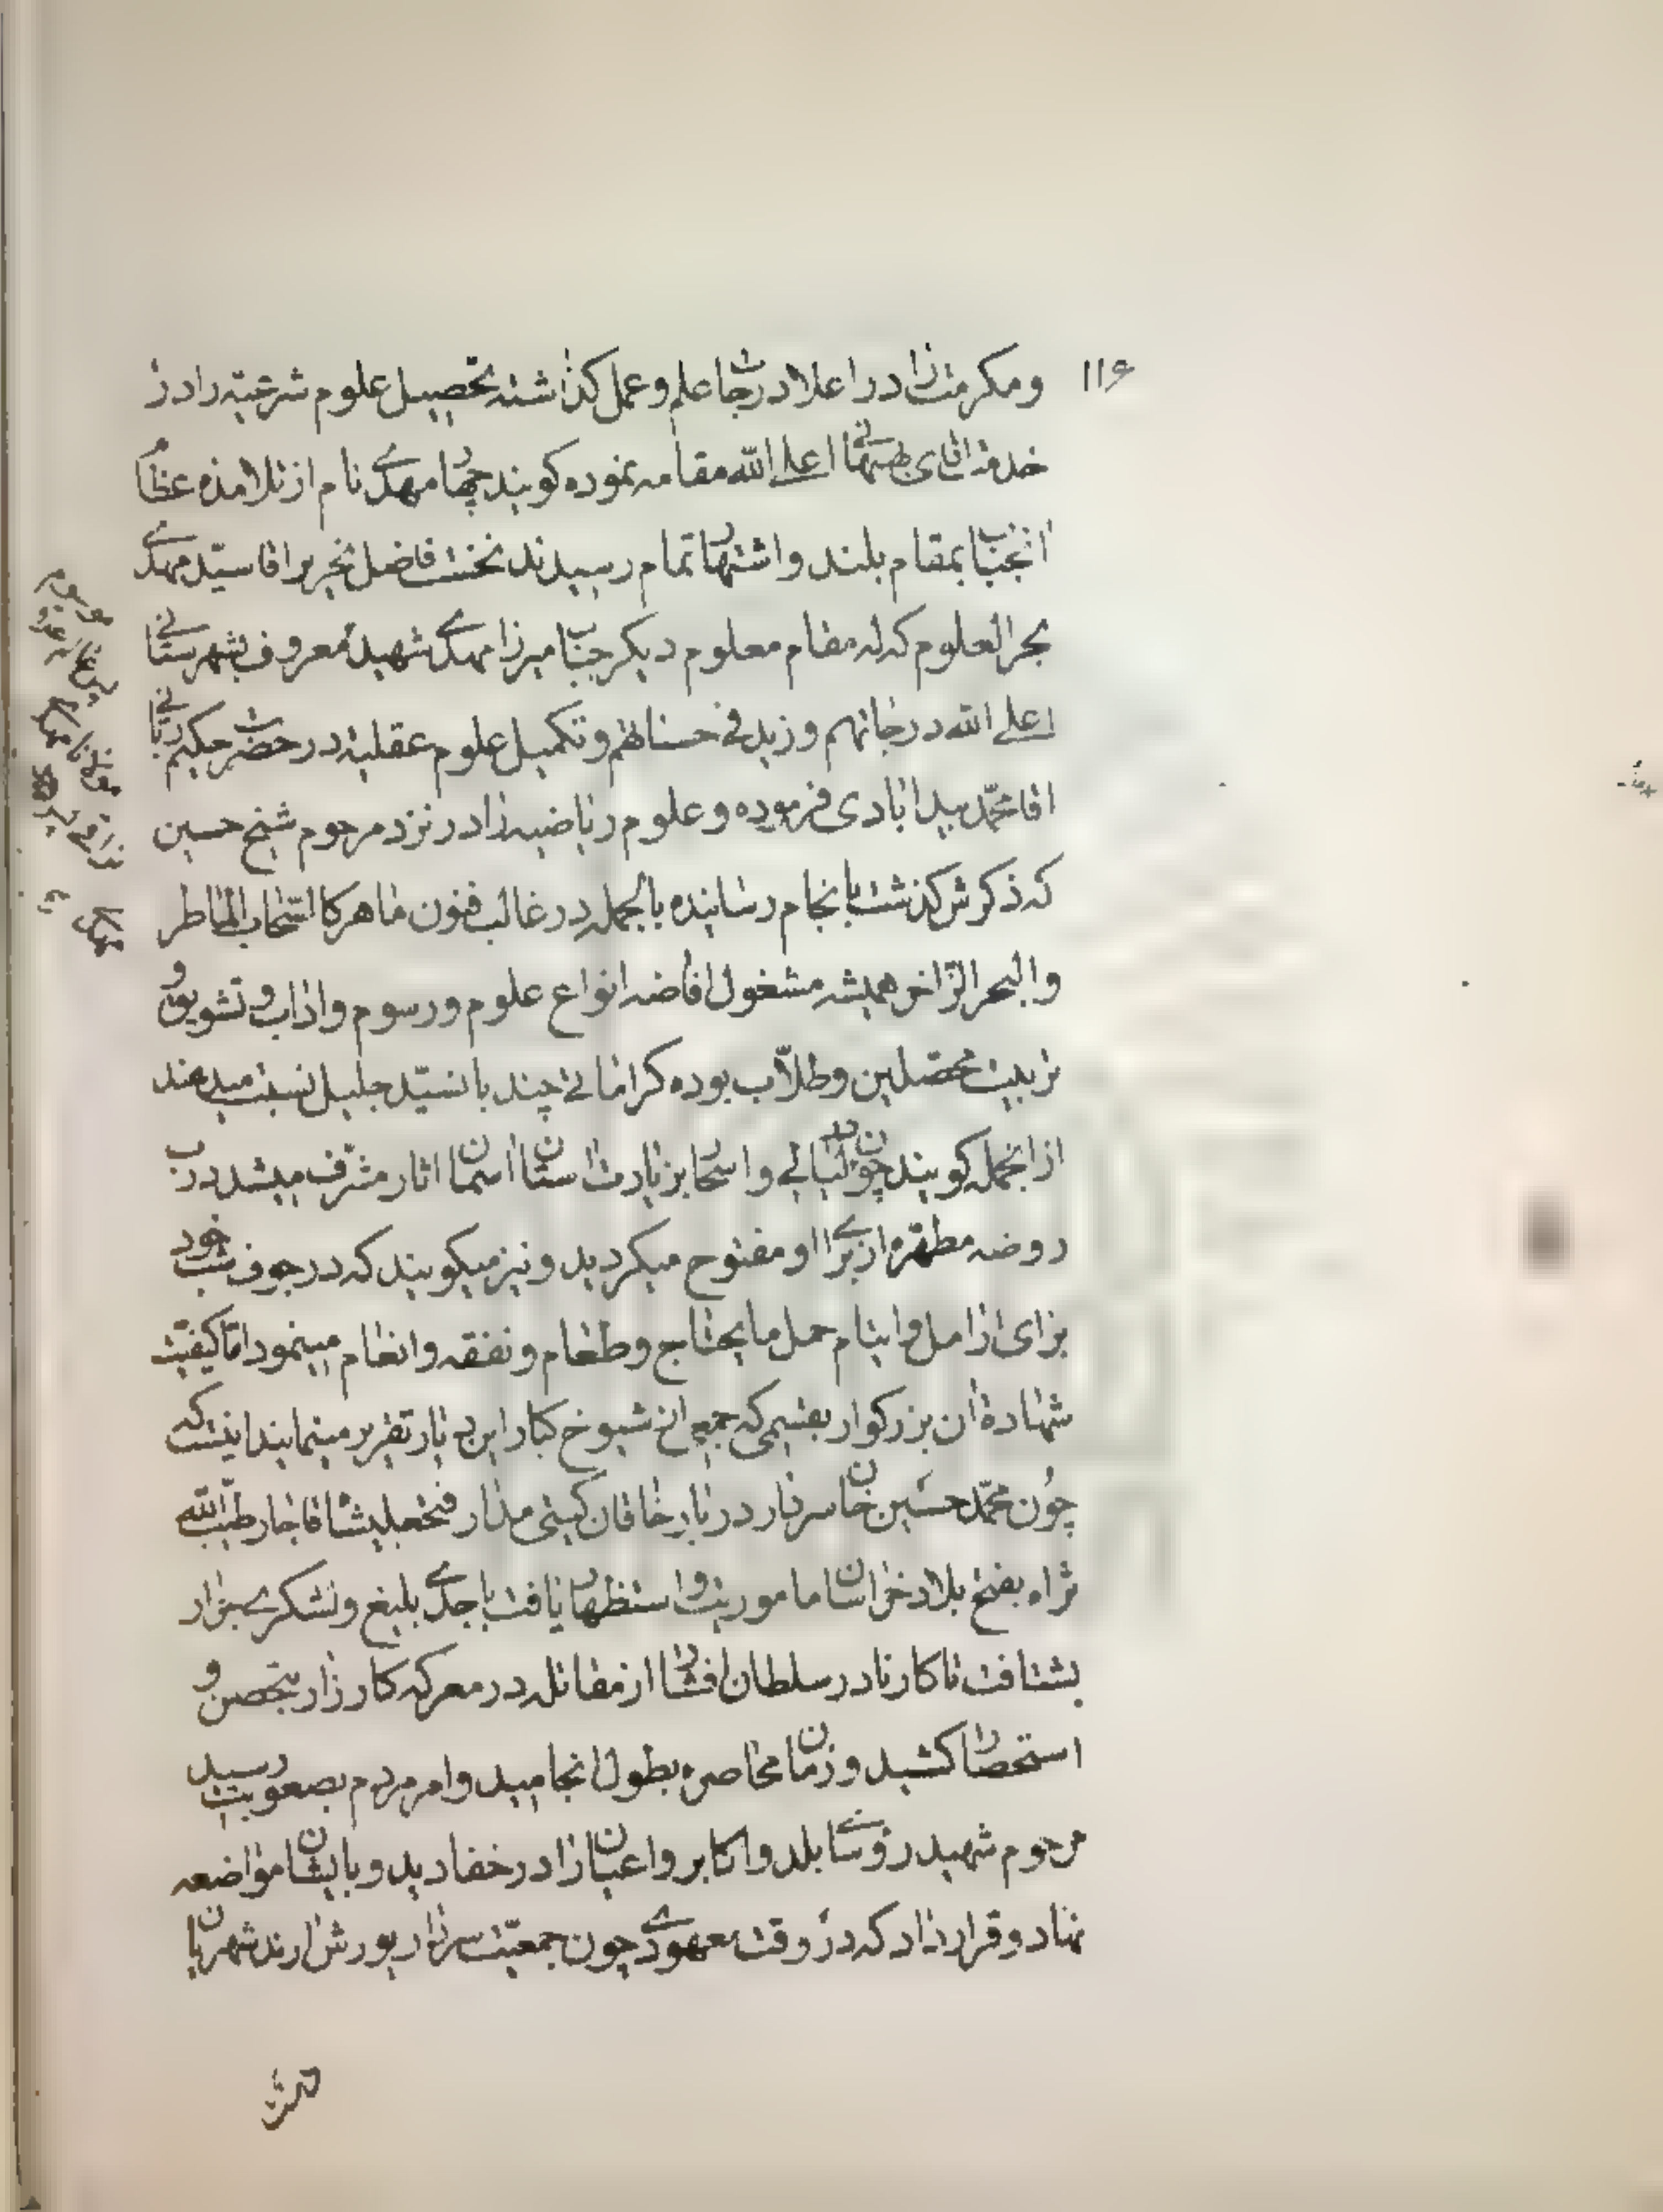 ۱۱۶
ومکرمت را در اعلا درجات علم وعمل کذاشته تحصیل علوم شرعیّه را در
خدمت اقای بهبهانی اعلی الله مقامه نموده کویند چهار مهدی نام از تلامذه عظام
انجناب بمقام بلند واشتهار تمام رسیدند نخست فاضل نحریر اقا سیّد مهدی
بحر العلوم که له مقام معلوم دیکر جناب میرزا مهدی شهید معروف بشهرستانی
اعلی الله درجاتهم وزید فی حسناتهم وتکمیل علوم عقلیه در حضرت حکیم ربانی
اقا محمّد بیدابادی فرموده وعلوم ریاضیه را در نزد مرحوم شیخ حسین
که ذکرش کذشت بانجام رسانیده بالجمله در غالب فنون ماهر کالسّحاب الماطر
والبحر الزّاخر همیشه مشغول افاضه انواع علوم ورسوم واداب وتشویق و
تربیت محصّلین وطلّاب بوده کراماتی چند بانسیّد جلیل نسبت میدهند
از انجمله کویند چون در لیالی واسحار بزیارت استان اسمان اثار مشرّف میشد درب
روضه مطهّره از برای او مفتوح میکردید ونیز میکویند که در جوف شب خود
برای ارامل وایتام حمل مایحتاج وطعام ونفقه وانعام مینمود امّا کیفیّت
شهادة ان بزرکوار بقسمی که جمعی از شیوخ کبار این دیار تقریر مینمایند اینست که
چون محمّد حسین خان سردار دربار خاقان کیتی مدار فتحعلیشاه قاجار طیّب الله
ثراه بفتح بلاد خراسان مأموریت واستظهار یافت با جدی بلیغ ولشکری جرار
بشتافت تا کار نادر سلطان افشار از مقاتله در معرکه کارزار بتحصن و
استحصار کشید وزمان محاصره بطول انجامید وامر مردم بصعوبت رسید
مرحوم شهید رؤسای بلد واکابر واعیان را در خفا دید وبایشان مواضعه
نهاد وقرار داد که در وقت معهودی چون جمعیّت سردار یورش ارند شهریان